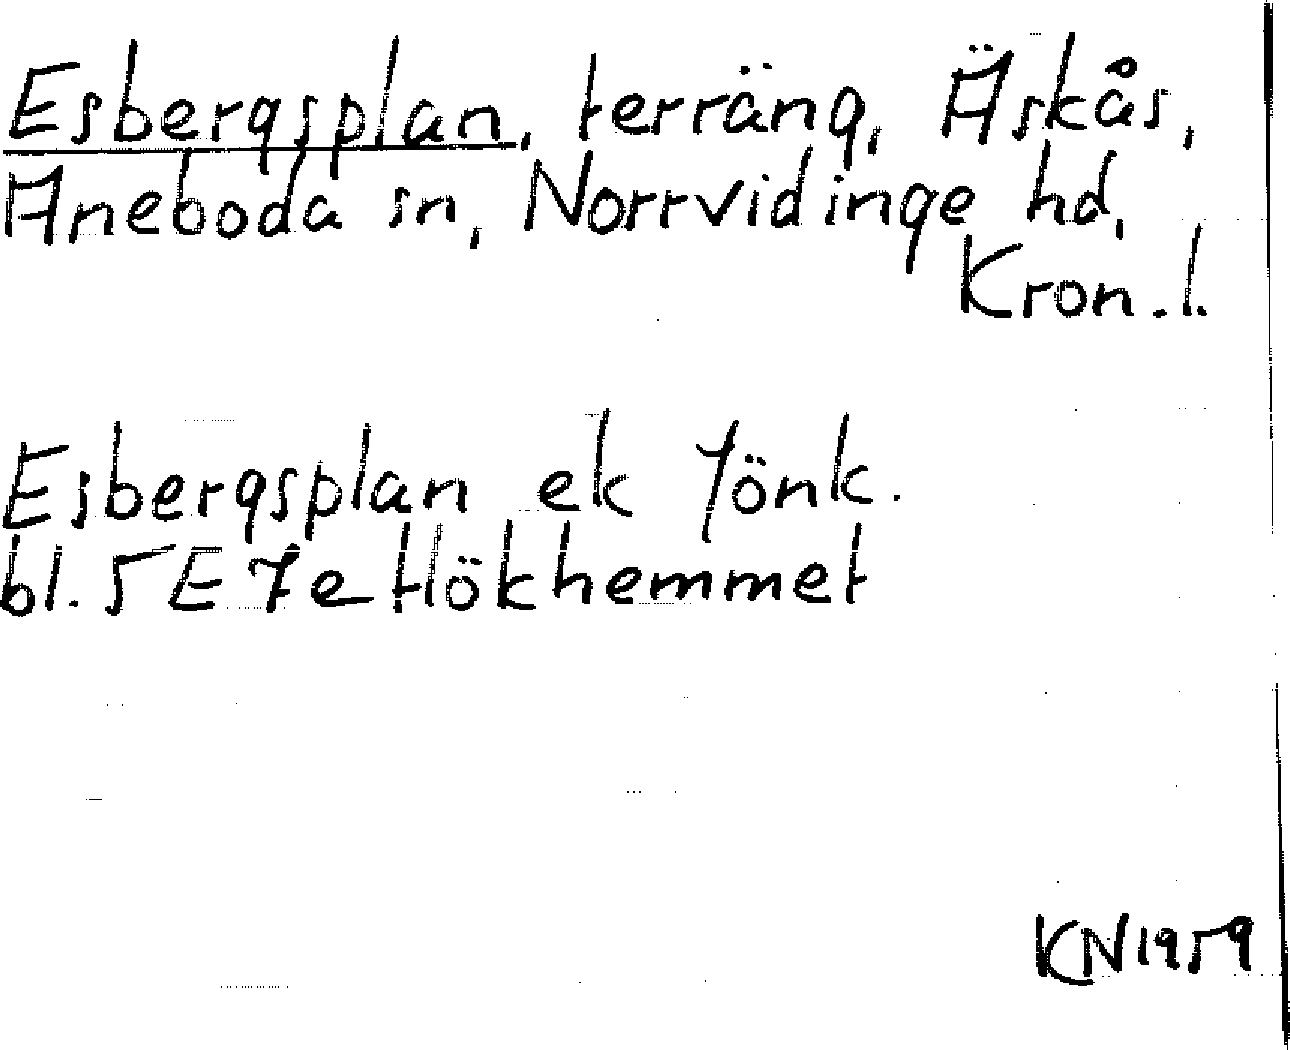 Esbergsplan, terräng, Äskås,
Aneboda sn, Norrvidinge hd,
Kron.l.
Esbergsplan ek Jönk.
bl. 5 E 7e Hökhemmet
KN 1959